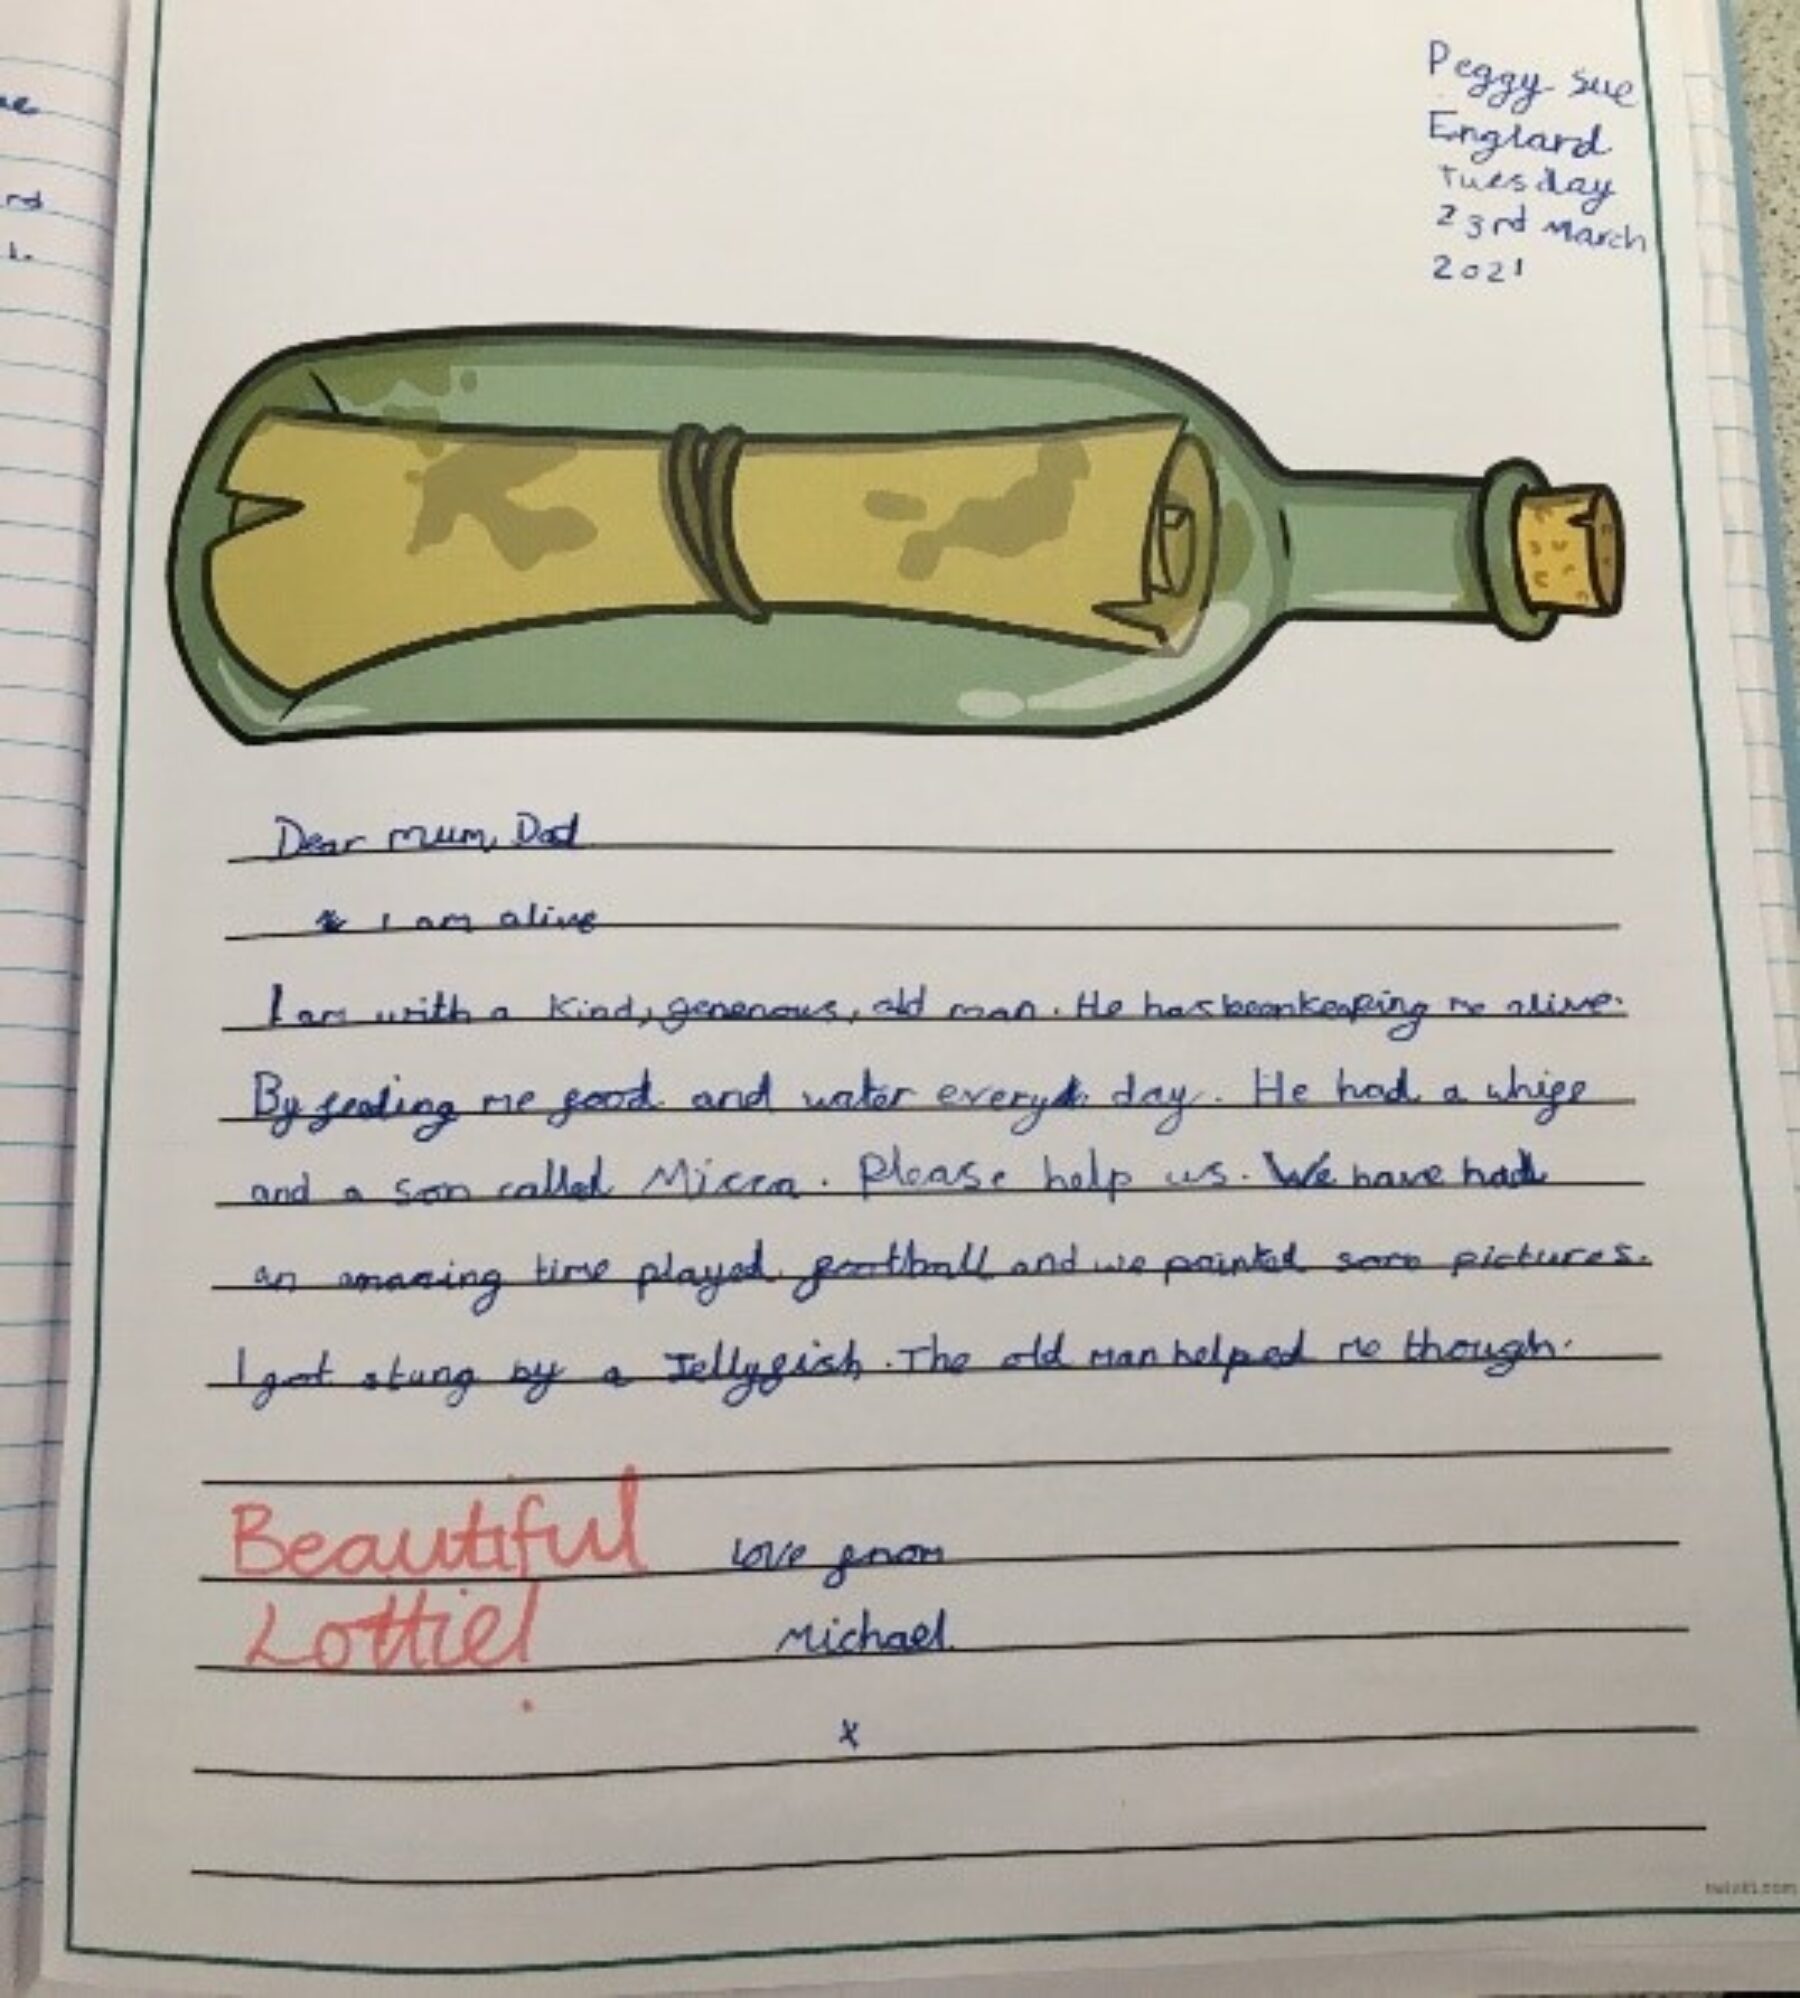 Peggy Sue
England
Tuesday
23rd March
2021
Dear mum, Dad
I am alive
I am with a kind, generous, old man. He has been keeping me alive.
By feeding me food and water every day. He had a whife
and a son called Micca. Please help us. We have had
an amazing time played football and we painted some pictures.
I got stung by a Jellyfish. The old man helped me though.
Beautiful love from
Lottie! Michael
x
rd